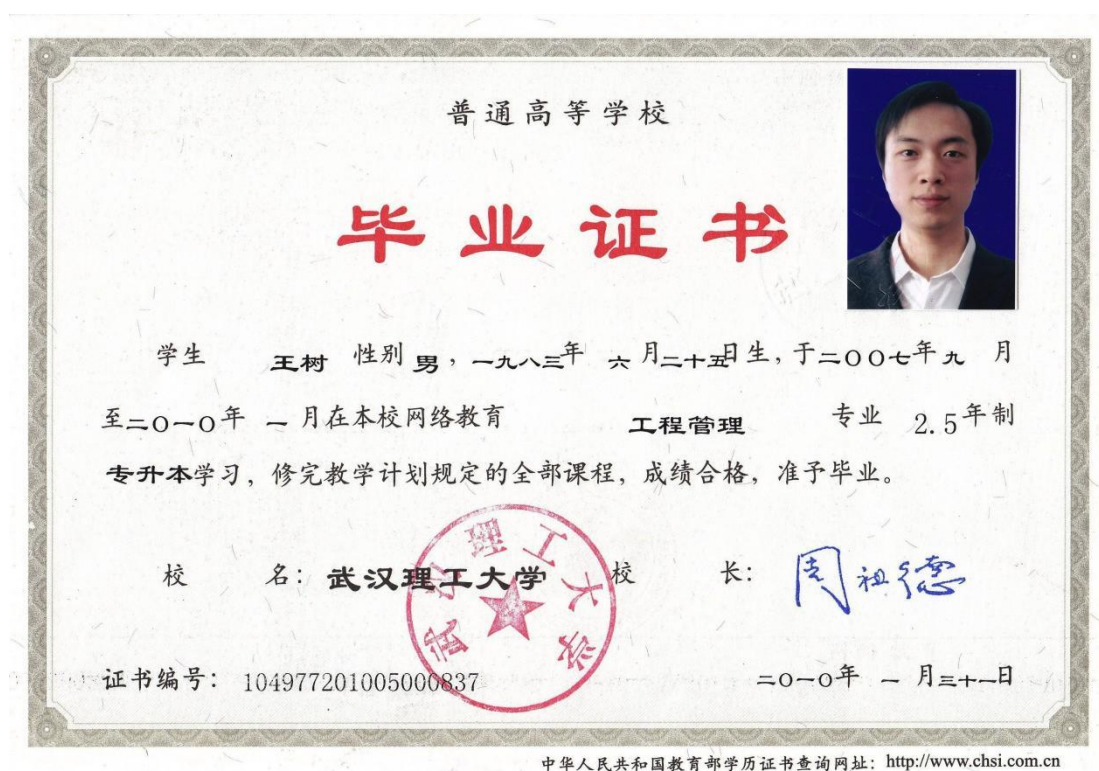 普通高等学校
毕业证书
学生 王树 性别 男，一九八三年 六 月二十五日生，于二〇〇七年九 月
至二〇一〇年 一 月在本校网络教育 工程管理 专业 2.5年制
专升本学习，修完教学计划规定的全部课程，成绩合格，准予毕业。
校 名：武汉理工大学 校 长：周祖德
武汉理工大学
证书编号：104977201005000837 二〇一〇年 一 月三十一日
中华人民共和国教育部学历证书查询网址：http://www.chsi.com.cn